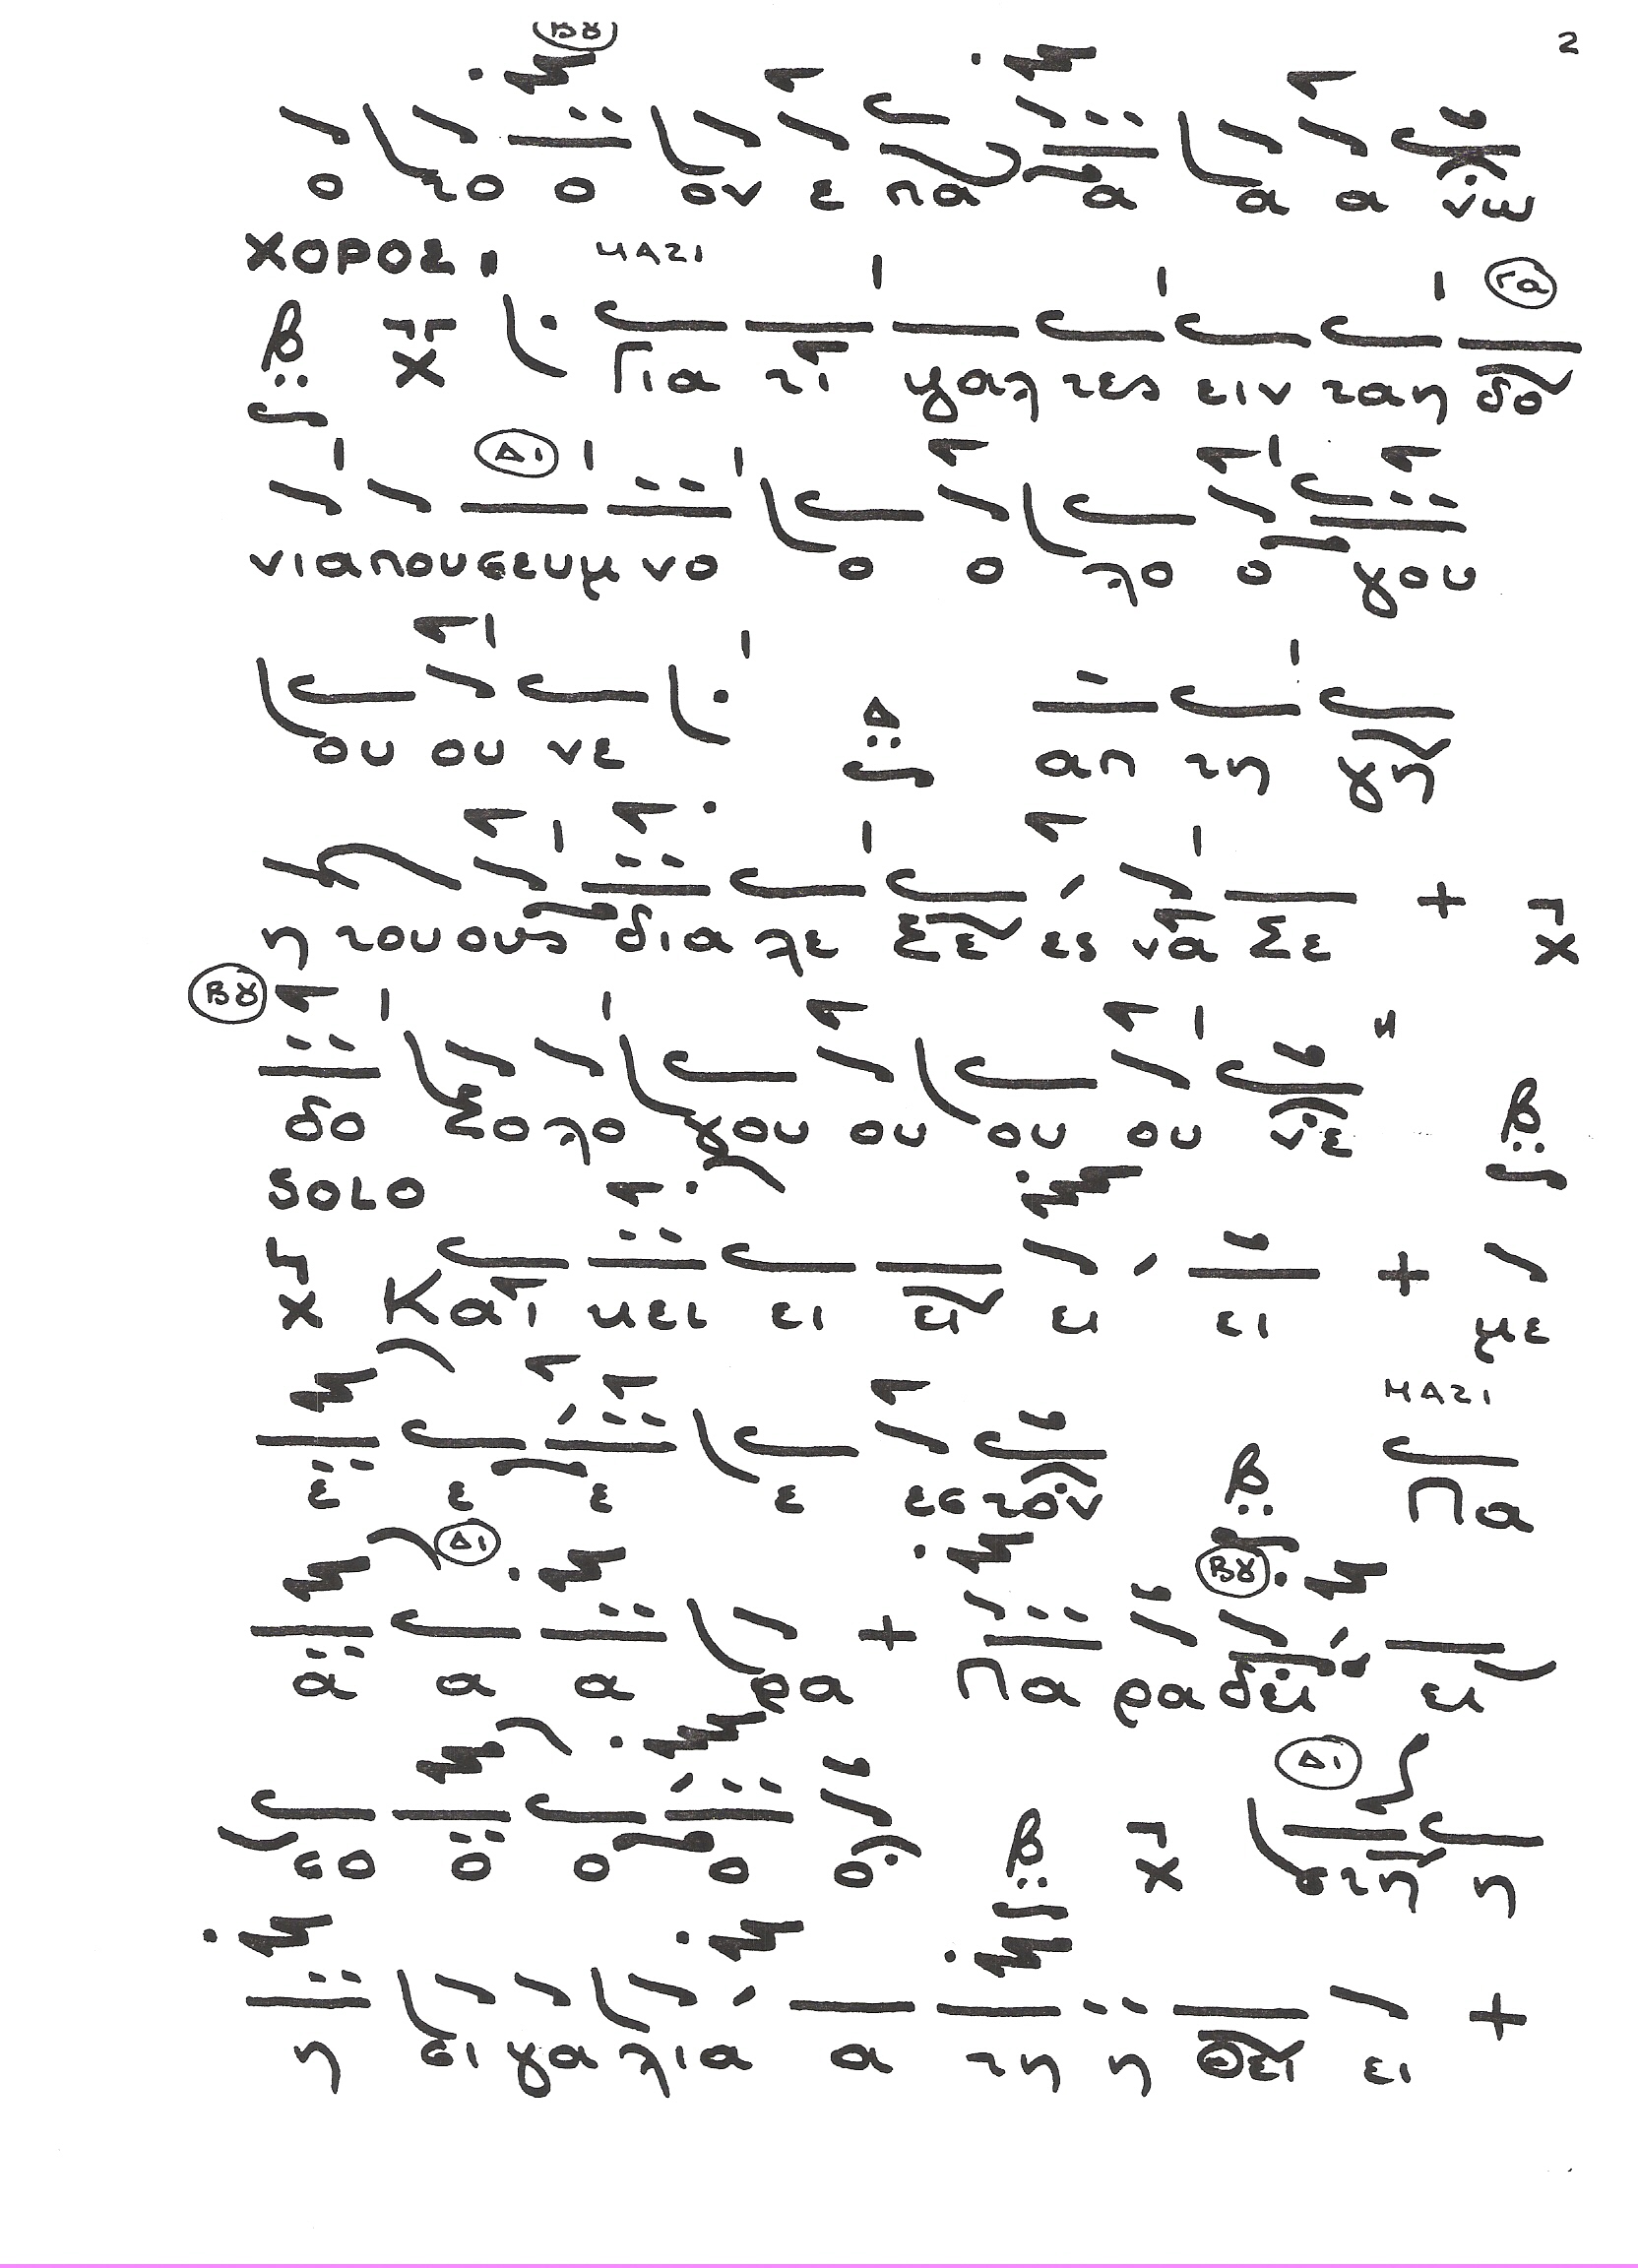 Βȣ 2
ο το ο ον ε πα α α α νω
ΧΟΡΟΣ: ΜΑΖΙ
Γα
β χ Για τι ψαλτες ειν ταη δο
Δι
νιαπουσευμ νο ο ο λο ο γου
ου ου νε Δ απ τη γη
η τουους δια λε ξε ες να ξε + χ
Βȣ
δο ξο λο γου ου ου ου νε β
SOLO
χ Και κει ει ει ει ει + με
ΜΑΖΙ
ε ε ε ε εσ τον β Πα
Δι Βȣ
α α α ρα + Πα ρα δει ει
Δι
σο ο ο ο ο β χ στη η
η σι γα λια α τη η θει ει +